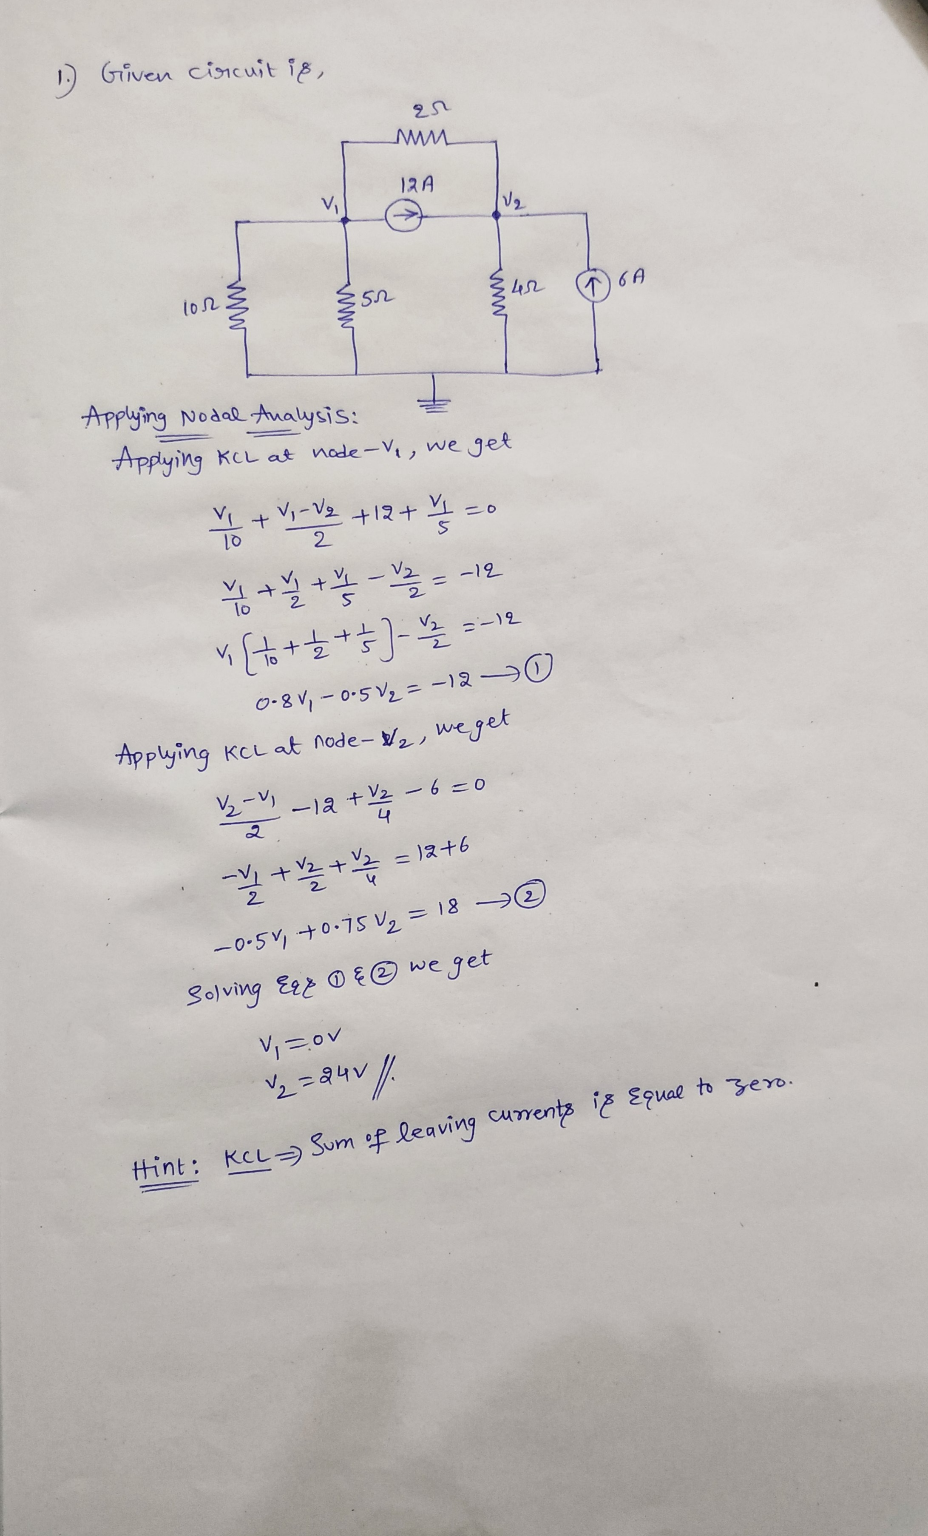 1.) Given circuit is,
2Ω
12A
V₁
V₂
10Ω
5Ω
4Ω
6A
Applying Nodal Analysis:
Applying KCL at node-V₁, we get
V₁/10 + (V₁-V₂)/2 + 12 + V₁/5 = 0
V₁/10 + V₁/2 + V₁/5 - V₂/2 = -12
V₁[1/10 + 1/2 + 1/5] - V₂/2 = -12
0.8V₁ - 0.5V₂ = -12 → ①
Applying KCL at node-V₂, we get
(V₂-V₁)/2 - 12 + V₂/4 - 6 = 0
-V₁/2 + V₂/2 + V₂/4 = 12+6
-0.5V₁ + 0.75V₂ = 18 → ②
Solving Eqs ① & ② we get
V₁ = 0V
V₂ = 24V //.
Hint: KCL ⇒ Sum of leaving currents is Equal to zero.